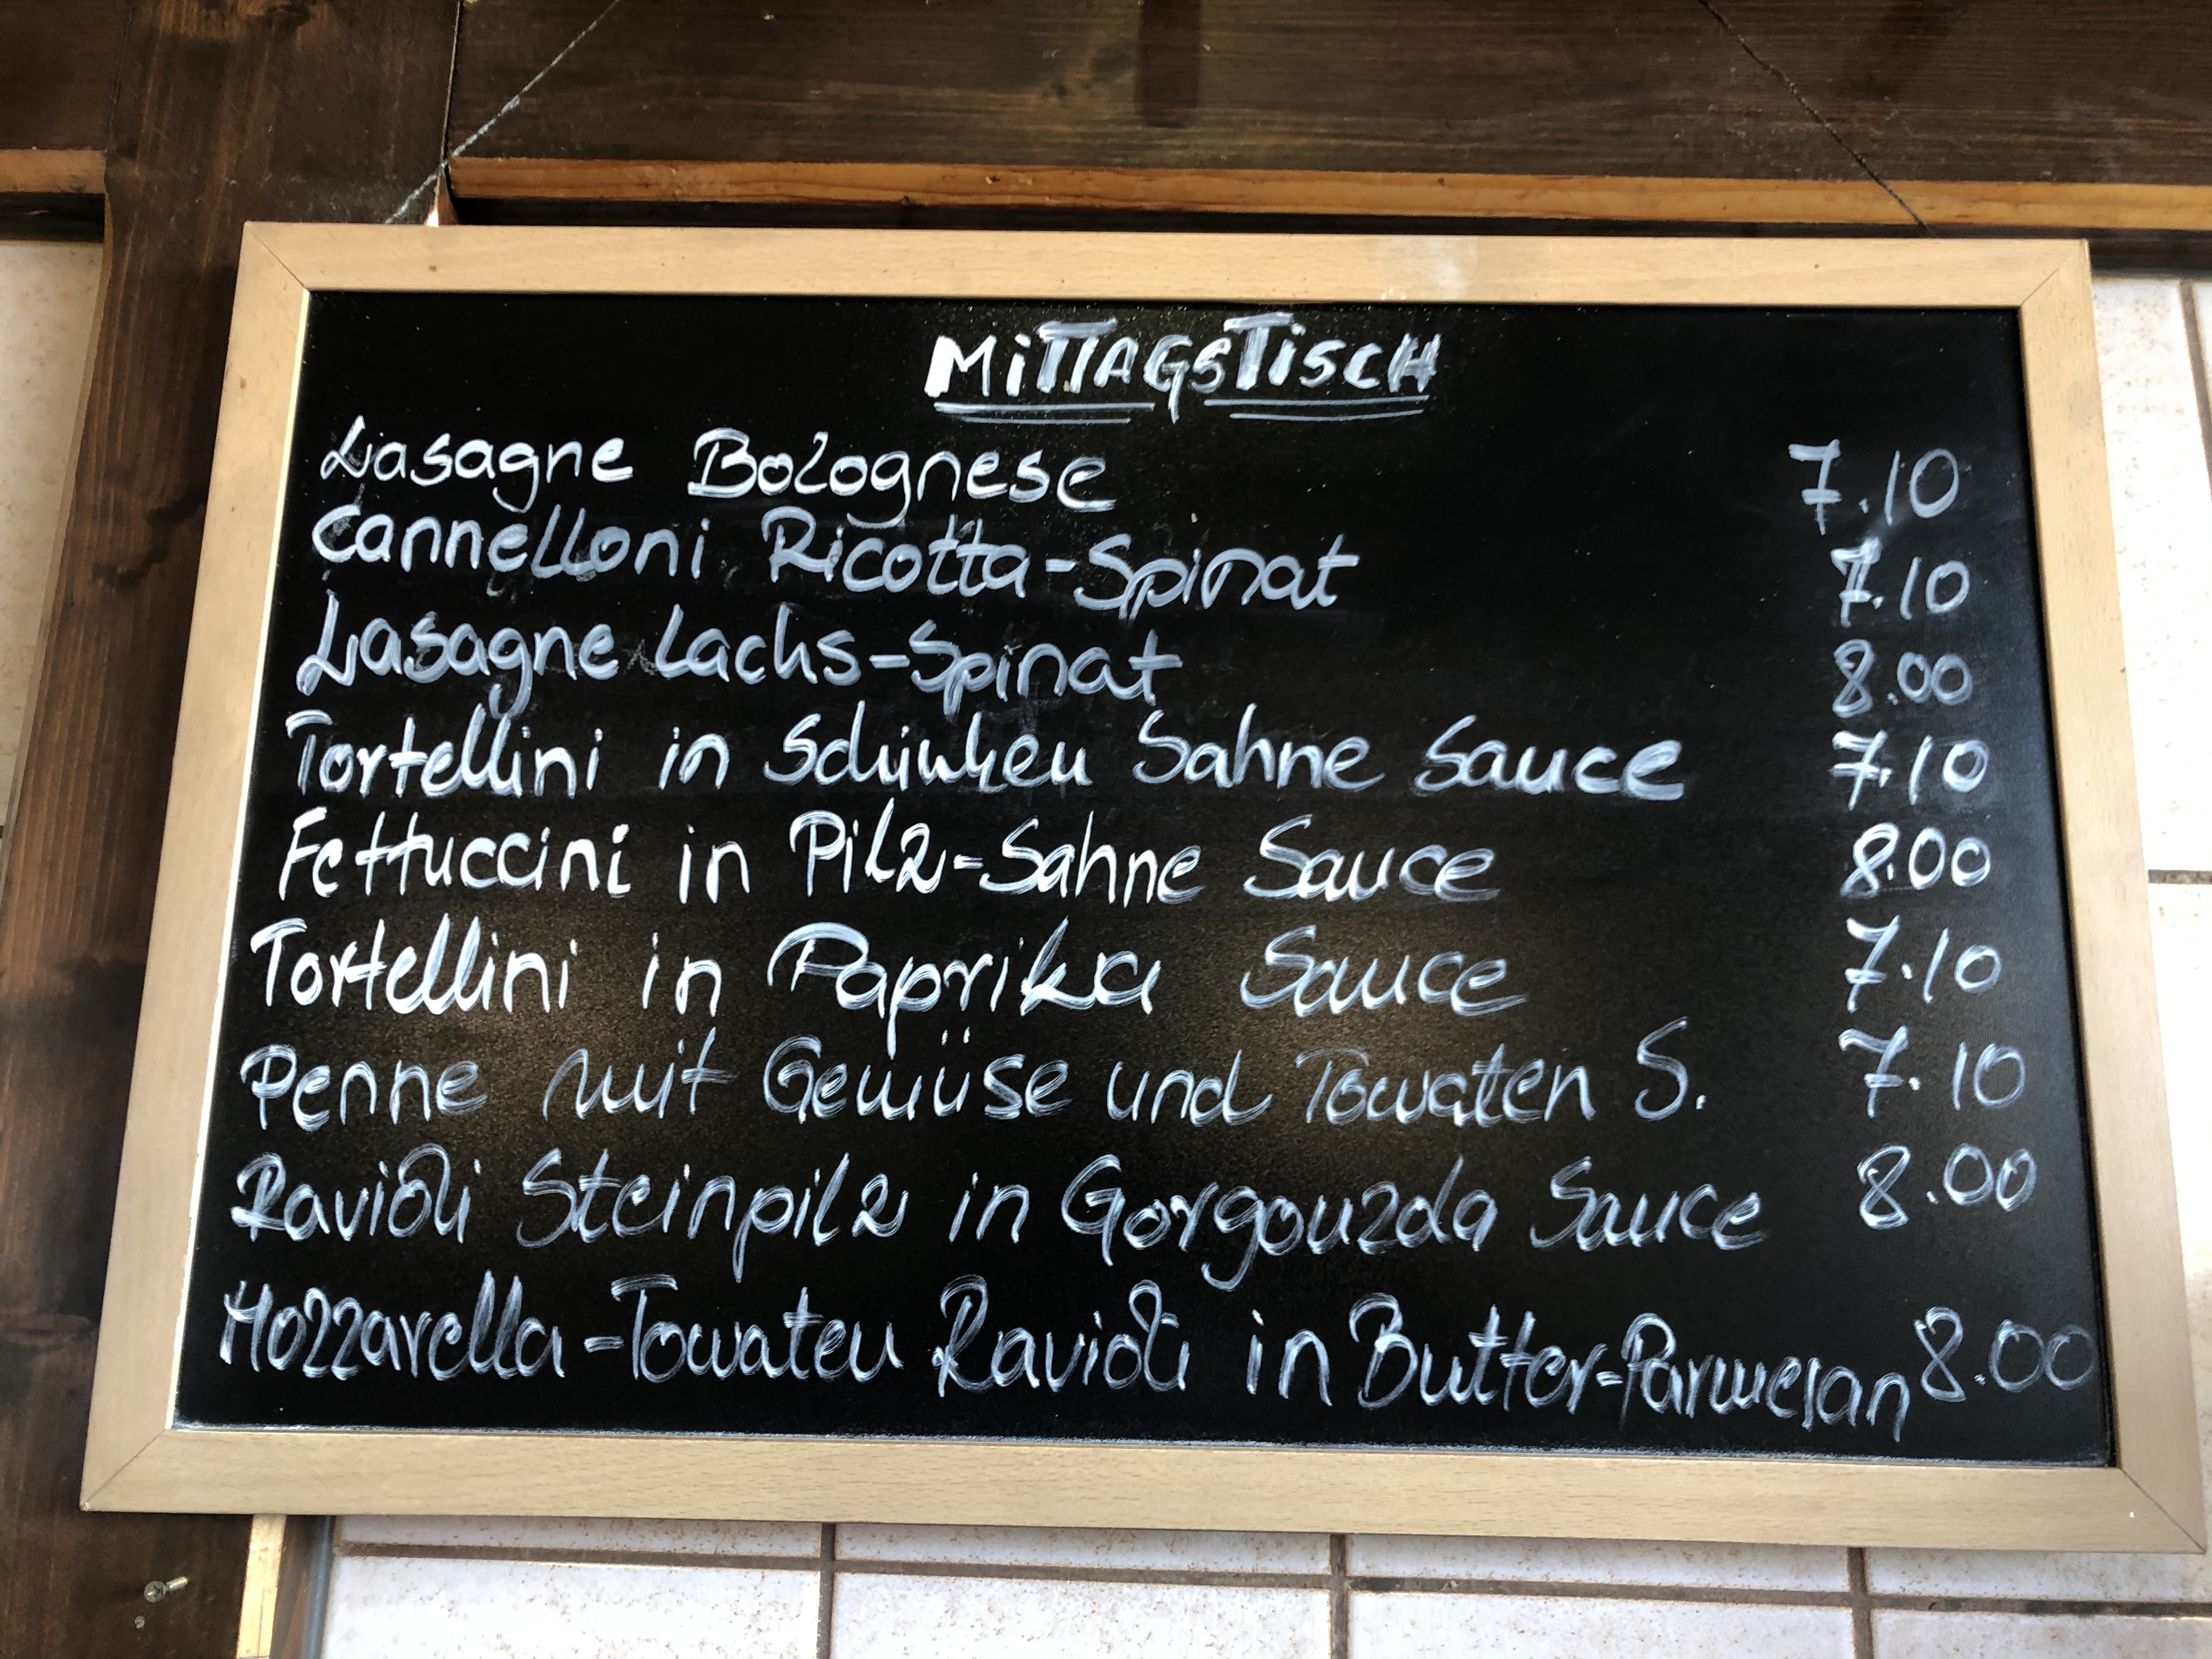 MiTTAGSTiSCH
Lasagne Bolognese 7.10
Cannelloni Ricotta-Spinat 7.10
Lasagne Lachs-Spinat 8.00
Tortellini in Schinken Sahne Sauce 7.10
Fettuccini in Pilz-Sahne Sauce 8.00
Tortellini in Paprika Sauce 7.10
Penne mit Gemüse und Tomaten S. 7.10
Ravioli Steinpilz in Gorgonzola Sauce 8.00
Mozzarella-Tomaten Ravioli in Butter-Parmesan 8.00